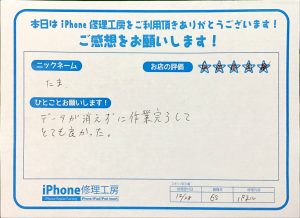 本日は iPhone 修理工房をご利用頂きありがとうございます!
ご感想をお願いします!
ニックネーム
お店の評価
たま
ひとことお願いします!
データが消えずに作業完了して
とても良かった。
iPhone修理工房